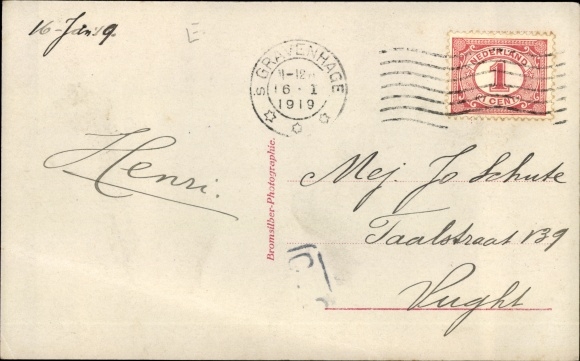 16-Jan: 19.
E
'S GRAVENHAGE
11-12
16·I
1919
NEDERLAND
1
1 CENT
Henri.
Bromsilber-Photographie.
Mej. Jo Schute
Taalstraat 139
Vught